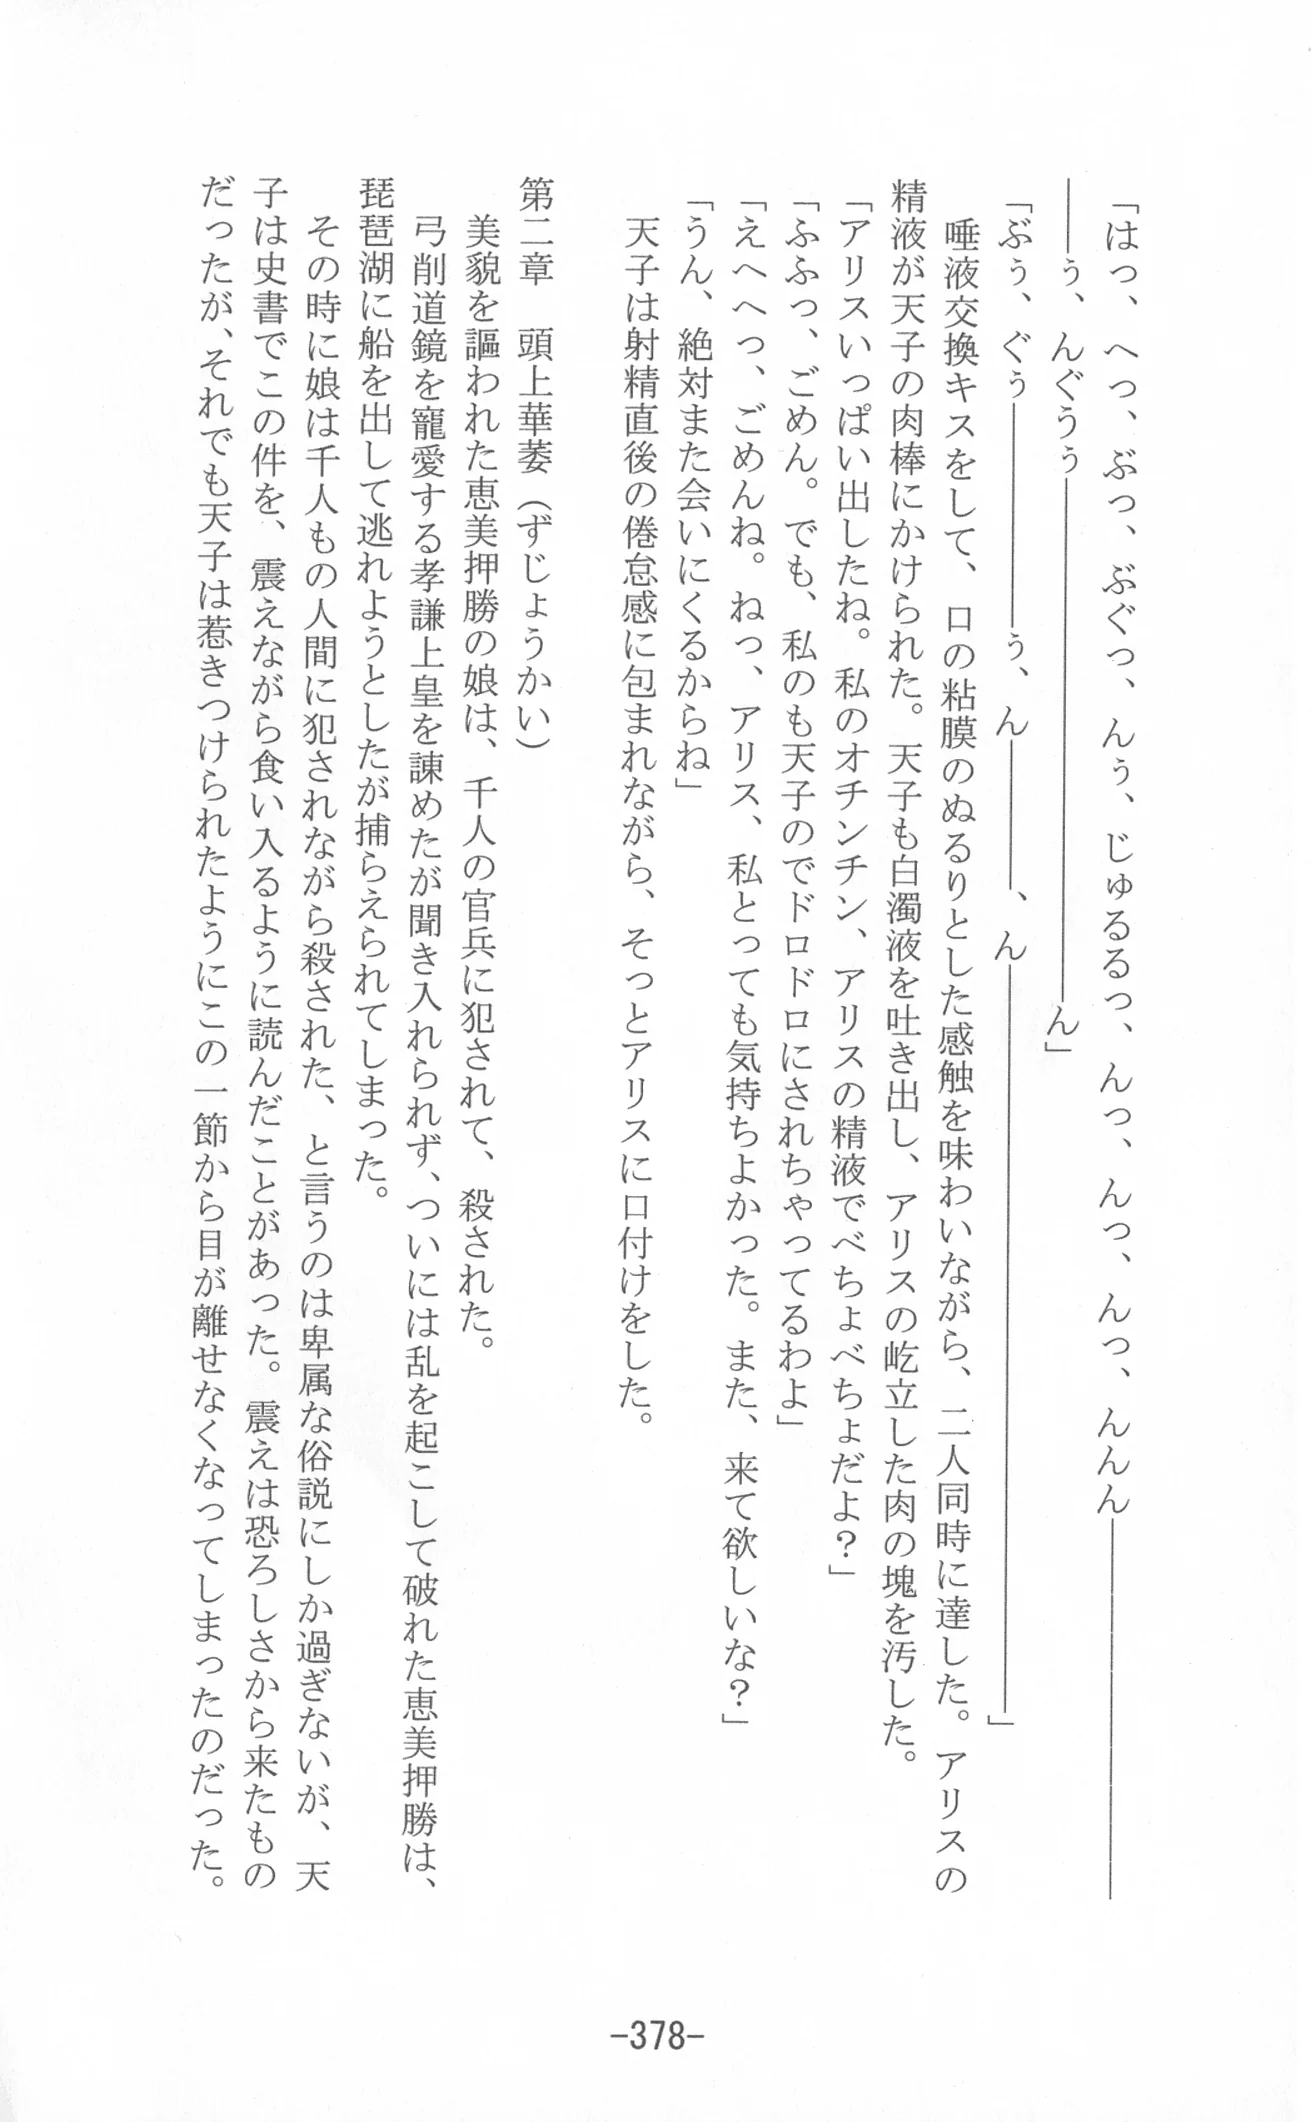 「はっ、へっ、ぶっ、ぶぐっ、んぅ、じゅるるっ、んっ、んっ、んっ、んんん――――――――――
――ぅ、んぐうぅ――――――――――――――ん」
「ぶぅ、ぐぅ――――――ぅ、ん――――、ん――――――――――――――――――――」
　唾液交換キスをして、口の粘膜のぬるりとした感触を味わいながら、二人同時に達した。アリスの
精液が天子の肉棒にかけられた。天子も白濁液を吐き出し、アリスの屹立した肉の塊を汚した。
「アリスいっぱい出したね。私のオチンチン、アリスの精液でべちょべちょだよ？」
「ふふっ、ごめん。でも、私のも天子のでドロドロにされちゃってるわよ」
「えへへっ、ごめんね。ねっ、アリス、私とっても気持ちよかった。また、来て欲しいな？」
「うん、絶対また会いにくるからね」
　天子は射精直後の倦怠感に包まれながら、そっとアリスに口付けをした。
第二章　頭上華萎（ずじょうかい）
　美貌を謳われた恵美押勝の娘は、千人の官兵に犯されて、殺された。
　弓削道鏡を寵愛する孝謙上皇を諫めたが聞き入れられず、ついには乱を起こして破れた恵美押勝は、
琵琶湖に船を出して逃れようとしたが捕らえられてしまった。
　その時に娘は千人もの人間に犯されながら殺された、と言うのは卑属な俗説にしか過ぎないが、天
子は史書でこの件を、震えながら食い入るように読んだことがあった。震えは恐ろしさから来たもの
だったが、それでも天子は惹きつけられたようにこの一節から目が離せなくなってしまったのだった。
-378-